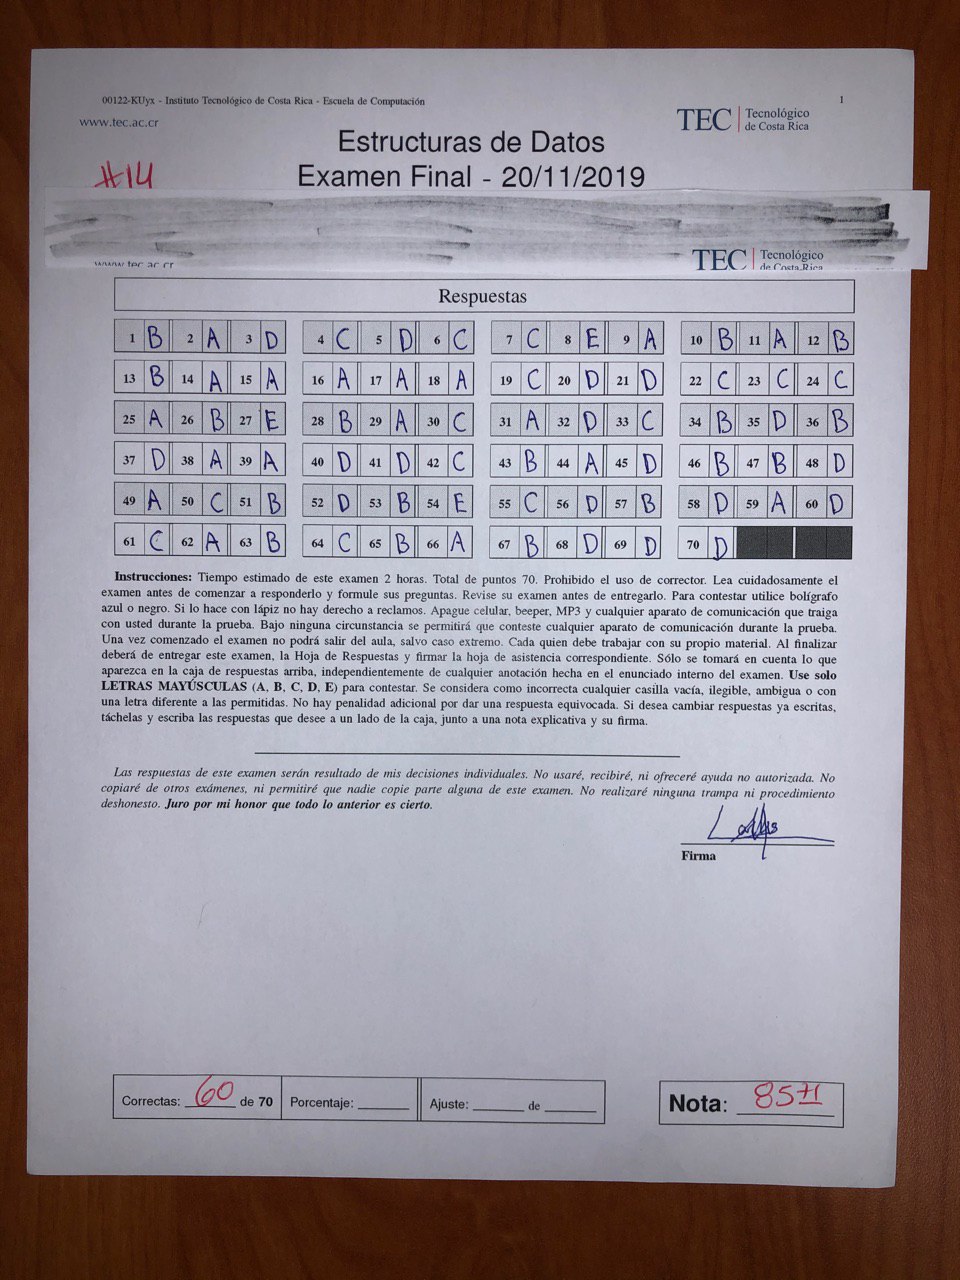 00122-KUyx - Instituto Tecnológico de Costa Rica - Escuela de Computación 1
www.tec.ac.cr
TEC Tecnológico
de Costa Rica
Estructuras de Datos
Examen Final - 20/11/2019
#14
www.tec.ac.cr
TEC Tecnológico
de Costa Rica
Respuestas
1 B 2 A 3 D 4 C 5 D 6 C 7 C 8 E 9 A 10 B 11 A 12 B
13 B 14 A 15 A 16 A 17 A 18 A 19 C 20 D 21 D 22 C 23 C 24 C
25 A 26 B 27 E 28 B 29 A 30 C 31 A 32 D 33 C 34 B 35 D 36 B
37 D 38 A 39 A 40 D 41 D 42 C 43 B 44 A 45 D 46 B 47 B 48 D
49 A 50 C 51 B 52 D 53 B 54 E 55 C 56 D 57 B 58 D 59 A 60 D
61 C 62 A 63 B 64 C 65 B 66 A 67 B 68 D 69 D 70 D
Instrucciones: Tiempo estimado de este examen 2 horas. Total de puntos 70. Prohibido el uso de corrector. Lea cuidadosamente el
examen antes de comenzar a responderlo y formule sus preguntas. Revise su examen antes de entregarlo. Para contestar utilice bolígrafo
azul o negro. Si lo hace con lápiz no hay derecho a reclamos. Apague celular, beeper, MP3 y cualquier aparato de comunicación que traiga
con usted durante la prueba. Bajo ninguna circunstancia se permitirá que conteste cualquier aparato de comunicación durante la prueba.
Una vez comenzado el examen no podrá salir del aula, salvo caso extremo. Cada quien debe trabajar con su propio material. Al finalizar
deberá de entregar este examen, la Hoja de Respuestas y firmar la hoja de asistencia correspondiente. Sólo se tomará en cuenta lo que
aparezca en la caja de respuestas arriba, independientemente de cualquier anotación hecha en el enunciado interno del examen. Use solo
LETRAS MAYÚSCULAS (A, B, C, D, E) para contestar. Se considera como incorrecta cualquier casilla vacía, ilegible, ambigua o con
una letra diferente a las permitidas. No hay penalidad adicional por dar una respuesta equivocada. Si desea cambiar respuestas ya escritas,
táchelas y escriba las respuestas que desee a un lado de la caja, junto a una nota explicativa y su firma.
Las respuestas de este examen serán resultado de mis decisiones individuales. No usaré, recibiré, ni ofreceré ayuda no autorizada. No
copiaré de otros exámenes, ni permitiré que nadie copie parte alguna de este examen. No realizaré ninguna trampa ni procedimiento
deshonesto. Juro por mi honor que todo lo anterior es cierto.
Firma
Correctas: 60 de 70 Porcentaje: Ajuste: de Nota: 8571